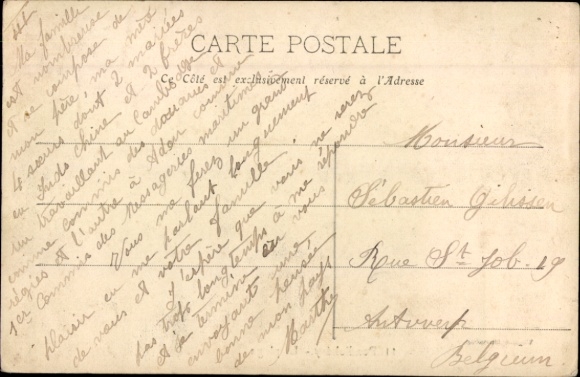 CARTE POSTALE
Ce Côté est exclusivement réservé à l'Adresse
Ma famille
est nombreuse
et se compose de
mon père, ma mère
4 sœurs dont 2 mariées
en Indo Chine et 2 frères
un travaillant au Cambodge
comme commis des douanes et
régies et l'autre à Adan comme
1er Commis des Messageries maritimes
Vous me ferez un grand
plaisir en me parlant longuement
de vous et votre famille
J'espère que vous ne serez
pas trop longtemps à me répondre
et je termine en vous
envoyant une
bonne pensée
de mon pays
Marthe
Monsieur
Sébastien Gilissen
Rue St Job - 19
Antwerp
Belgium